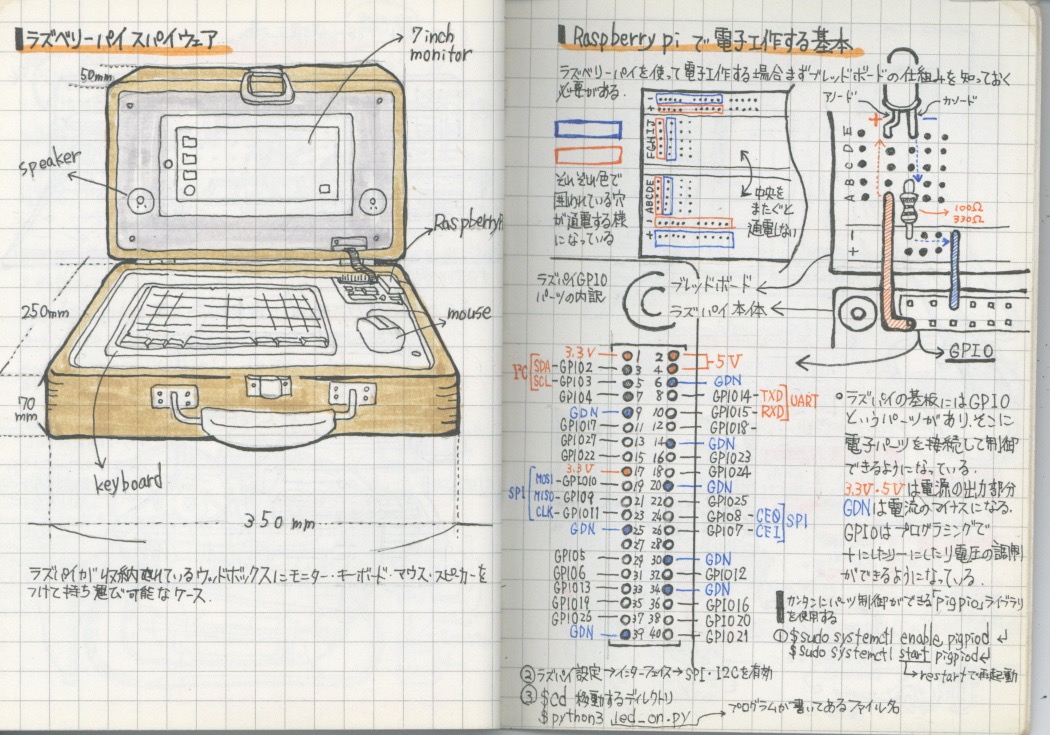 ラズベリーパイスパイウェア
7inch
monitor
50mm
speaker
Raspberry
250mm
mouse
70
mm
keyboard
350mm
ラズパイが収納されているウッドボックスにモニター・キーボード・マウス・スピーカーを
つけて持ち運び可能なケース.
Raspberry pi で電子工作する基本
ラズベリーパイを使って電子工作する場合まずブレッドボードの仕組みを知っておく
必要がある.
それぞれ色で
囲われている穴
が通電する様
になっている
- +
FGHIJ
ABCDE
+ -
中央を
またぐと
通電しない
アノード
カソード
+
-
A B C D E
100Ω
330Ω
+ -
ブレッドボード
ラズパイ本体
GPIO
ラズパイGPIO
パーツの内訳
3.3V 1 2 5V
I²C SDA GPIO2 3 4
SCL GPIO3 5 6 GDN
GPIO4 7 8 GPIO14 TXD UART
GDN 9 10 GPIO15 RXD
GPIO17 11 12 GPIO18
GPIO27 13 14 GDN
GPIO22 15 16 GPIO23
3.3V 17 18 GPIO24
SPI MOSI GPIO10 19 20 GDN
MISO GPIO9 21 22 GPIO25
CLK GPIO11 23 24 GPIO8 CE0 SPI
GDN 25 26 GPIO7 CE1
27 28
GPIO5 29 30 GDN
GPIO6 31 32 GPIO12
GPIO13 33 34 GDN
GPIO19 35 36 GPIO16
GPIO26 37 38 GPIO20
GDN 39 40 GPIO21
ラズパイの基板にはGPIO
というパーツがあり、そこに
電子パーツを接続して制御
できるようになっている.
3.3V・5Vは電源の出力部分
GDNは電流のマイナスになる.
GPIOはプログラミングで
+にしたりーにしたり電圧の調節
ができるようになっている.
カンタンにパーツ制御ができる「pigpio」ライブラリ
を使用する
① $sudo systemctl enable pigpiod ↲
$sudo systemctl start pigpiod ↲
restartで再起動
② ラズパイ設定→インターフェイス→SPI・I2Cを有効
③ $cd 移動するディレクトリ
$python3 led_on.py
プログラムが書いてあるファイル名